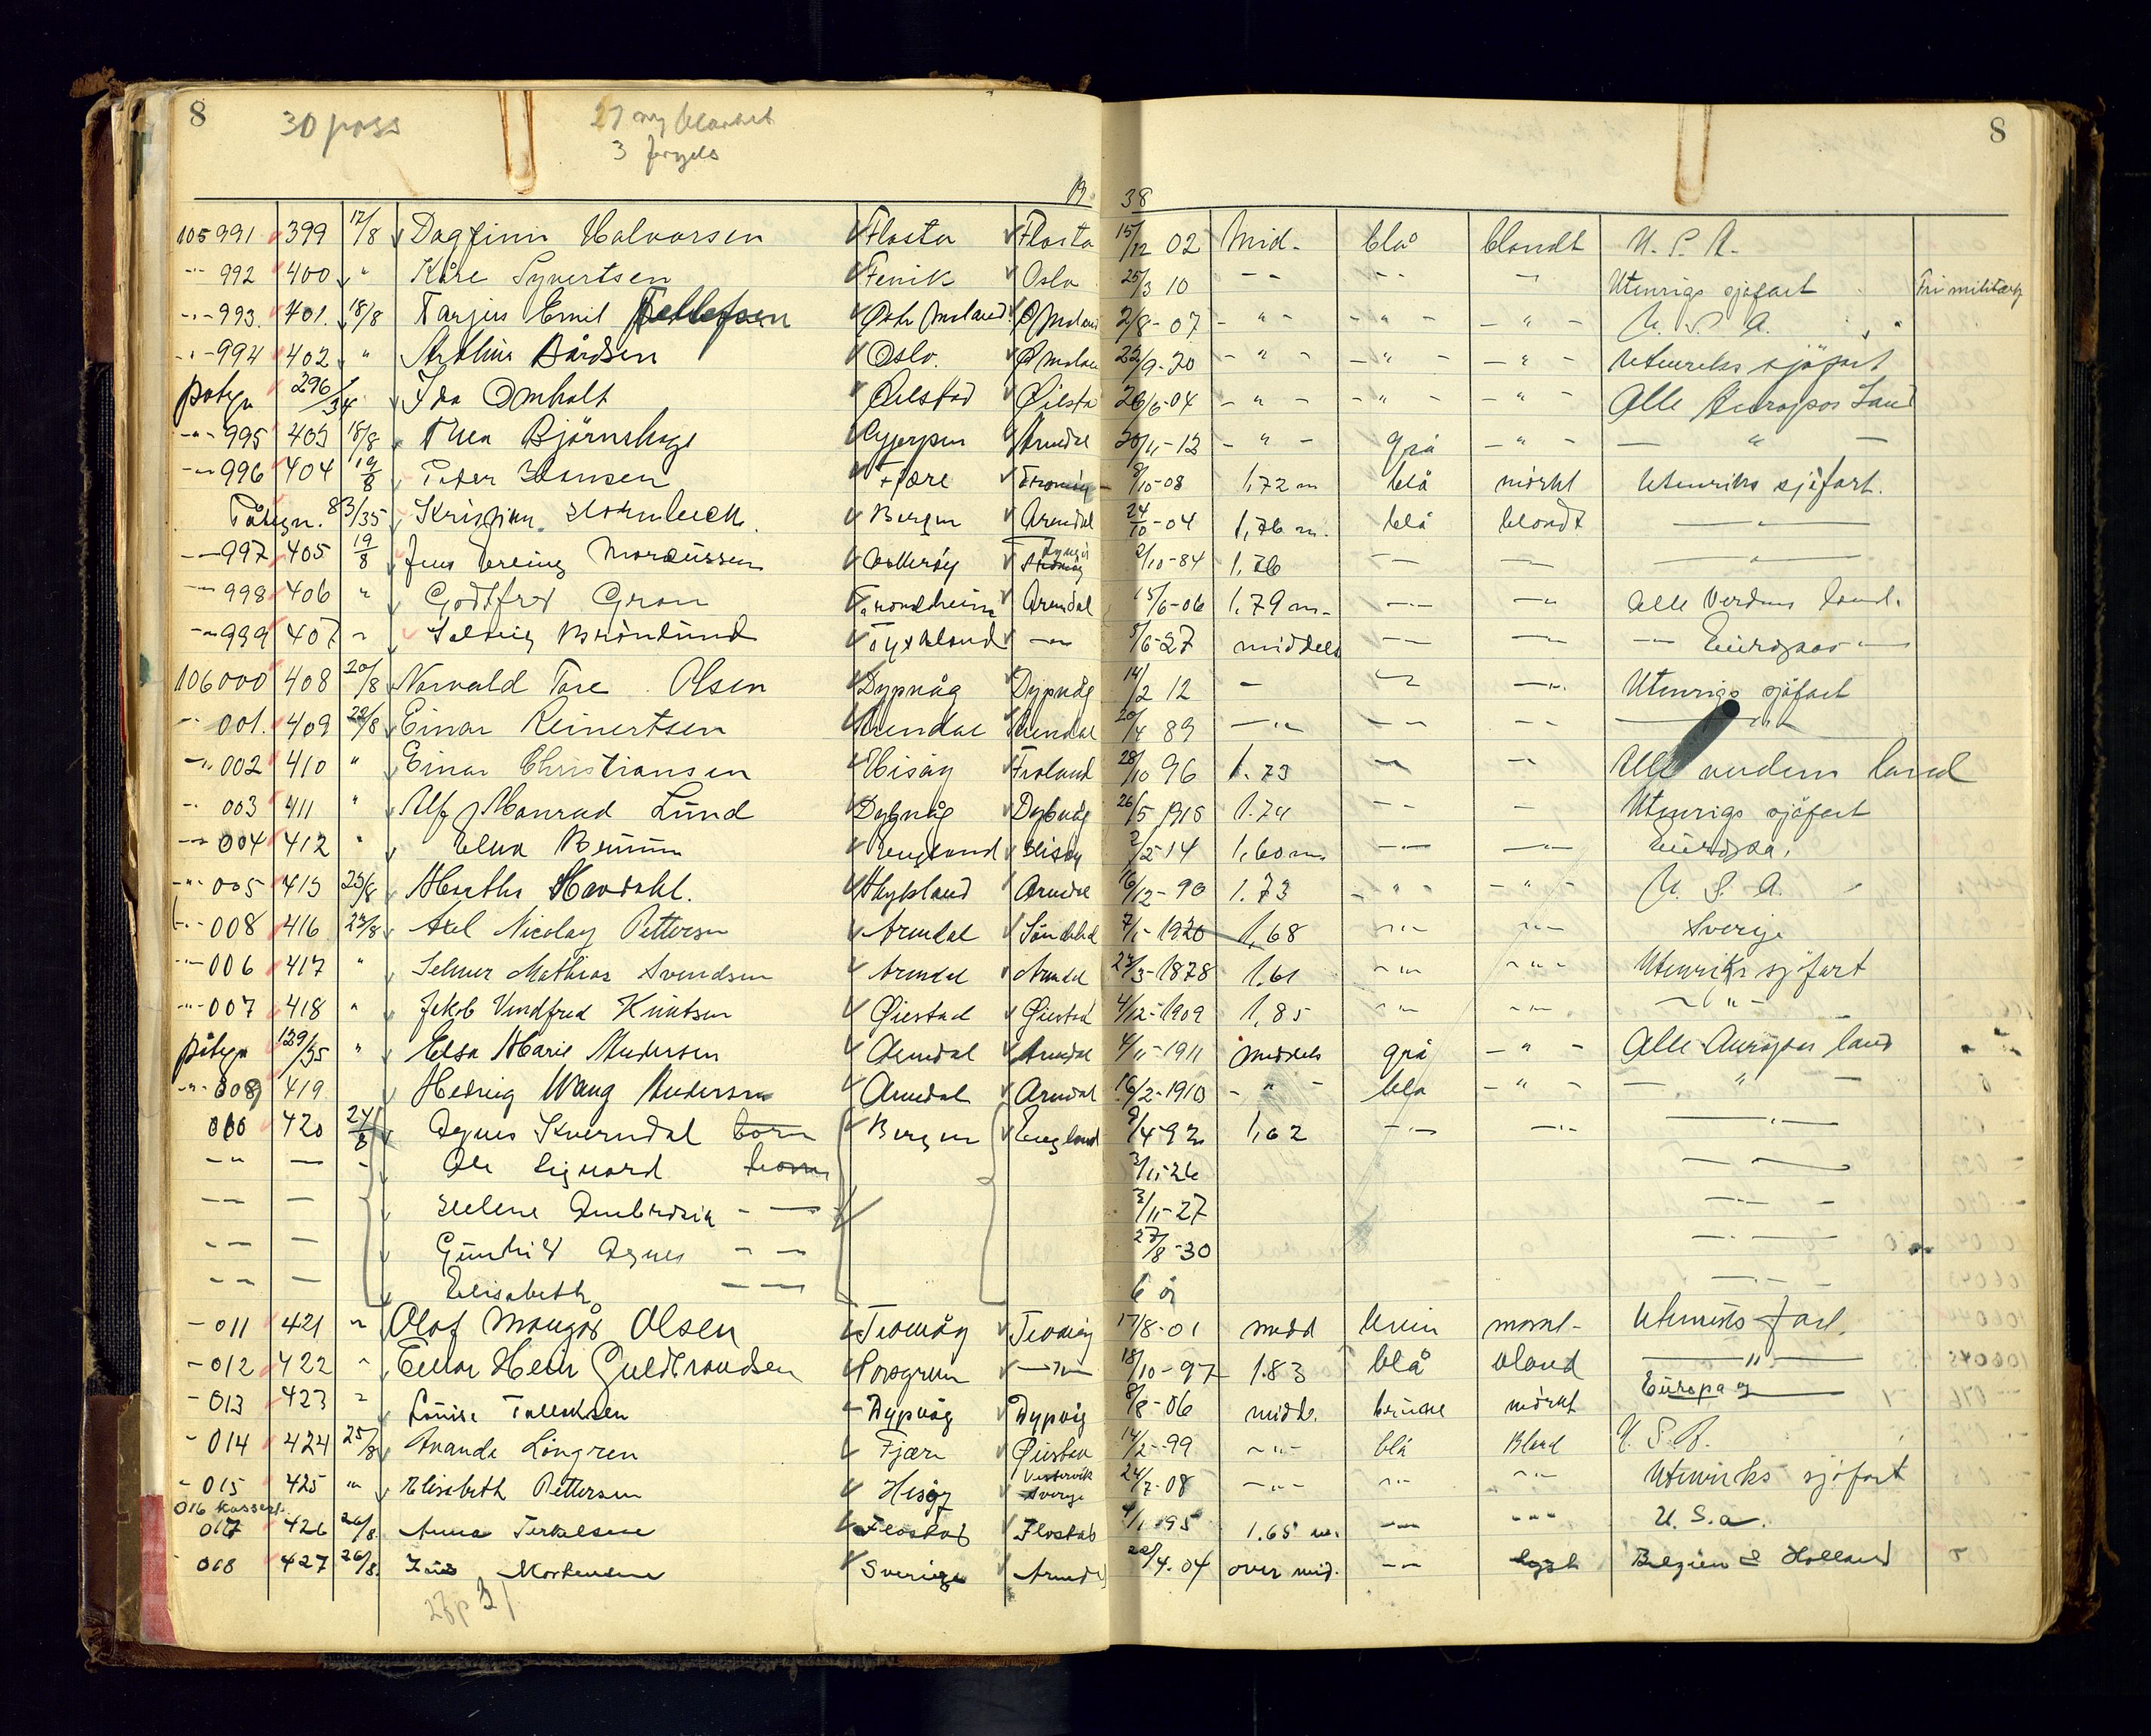 8 30 pass 27 ny blanket 8
3 fornyels
19 38
105991 399 17/8 Dagfinn Halvorsen Flosta Flosta 15/12 02 Mid. blå blondt U. S. A.
-"- 992 400 " Kåre Syvertsen Fevik Oslo 25/3 10 - - - - - Utenrigs sjøfart Fri militærtj
-"- 993. 401. 18/8 Tarjus Emil Tellefsen Østr Moland Ø Moland 2/8-07 - " - - " - - " - U. S. A. "
-"- 994 402 " Arthur Bårdsen Oslo. Ø Molan 22/9-20 - " - - " - - " - Utenriks sjøfart
påtegn 296/34 Ida Omholt Øiestad Øiesta 26/6-04 - " - - " - - " - Alle Europas Land
-"- 995 403 18/8 Thea Bjørnshage Gjerpen Arendal 20/11-12 - " - grå - " - - " -
-"- 996 404 19/8 Peter Hansen Fjære Tromøy 8/10-08 1,72 m blå mörkt Utenriks sjøfart.
Påtegn. 83/35 Kristian Hornbeck Bergen Arendal 24/10-04 1,76 m. blå blondt - " -
-"- 997 405 19/8 Jens Erling Marcussen 2/10-84 1,76 - - - " -
-"- 998 406 " Godtfred Gron Trondheim Arendal 15/6-06 1,79 m. -"- -"- Alle Verdens land.
-"- 999 407 " Solveig Brönlund Tyskland -"- 5/6-27 middels -"- -"- -"- Europas -"-
106000 408 20/8 Norvald Tore Olsen Dypvåg Dypvåg 14/2 12 - -"- -"- Utenrigs sjøfart
-"- 001. 409 22/8 Einar Reinertsen Arendal Arendal 20/4 89 -"- - - - - -"-
-"- 002 410 " Einar Christiansen Hisøy Froland 28/10 96 1.73 -"- -"- Alle verdens land
-"- 003 411 " Alf Monrad Lund Dybvåg Dybvåg 26/5 1915 1.74 - - - Utenrigs sjøfart
-"- 004 412 " Elna Brumm England Hisøy 2/2-14 1,60 m. -"- -"- Europa.
-"- 005 413 23/8 Martha Havdahl. Arendal 16/12-90 1.73 - " - - " - U. S. A.
-"- 008 416 23/8 Axel Nicolay Petterson Arendal Söndeled 7/1-1920 1,68 -"- -"- Sverige
-"- 006 417 " Selmer Mathias Svendsen Arendal Arendal 23/3-1878 1,61 -"- -"- Utenriks sjøfart
-"- 007 418 " Jakob Vindfred Knutsen Øiestad Øiestad 4/12-1909 1,85 -"- -"- -"-
påtegn 129/35 " Elsa Marie Andersen Arendal Arendal 4/11-1911 middels grå - " - Alle Europas land
-"- 009 419 Hedvig Wang Andersen Arendal Arendal 16/2-1910 - " - blå - " - - " -
010 420 24/8 Agnes Kverndal born Bergen England 9/4-92 1,62 -"- -"- - " -
-"- - - Ole Sigvard 3/11-26 - " -
- - - Helene Ambrosia - - 3/11-27 - " -
- - - Gunhild Agnes - - 27/8-30 - " -
- - - Elisabeth - - 6 år - " -
- 011 421 " Olaf Mangor Olsen Tromöy Tromöy 17/8-01 midd brun mörk- Utenriks fart.
- 012 422 " Einar Henr Guldbrandsen Porsgrunn -"- 18/10-97 1.83 blå blond - " -
- 013 423 " Louise Tallaksen Dypvåg Dypvåg 8/8-06 midd. brune mörkt Europa og
- 014 424 25/8 Amanda Lingren Fjære Øiestad 14/2-99 -"- blå Blond U. S. A.
- 015 425 " Elisabeth Pettersen Hisøy Vestervik Sverige 24/7-08 -"- -"- -"- Utenriks sjöfart
016 kassert.
017 426 26/8 Anna Terkelsen Flostad Flostad 4/1-95 1.65 m. -"- -"- U. S. a.
018 427 26/8. Mortensen Sverige Arendal 22/4-04 over mid. -"- lyst Belgien & Holland